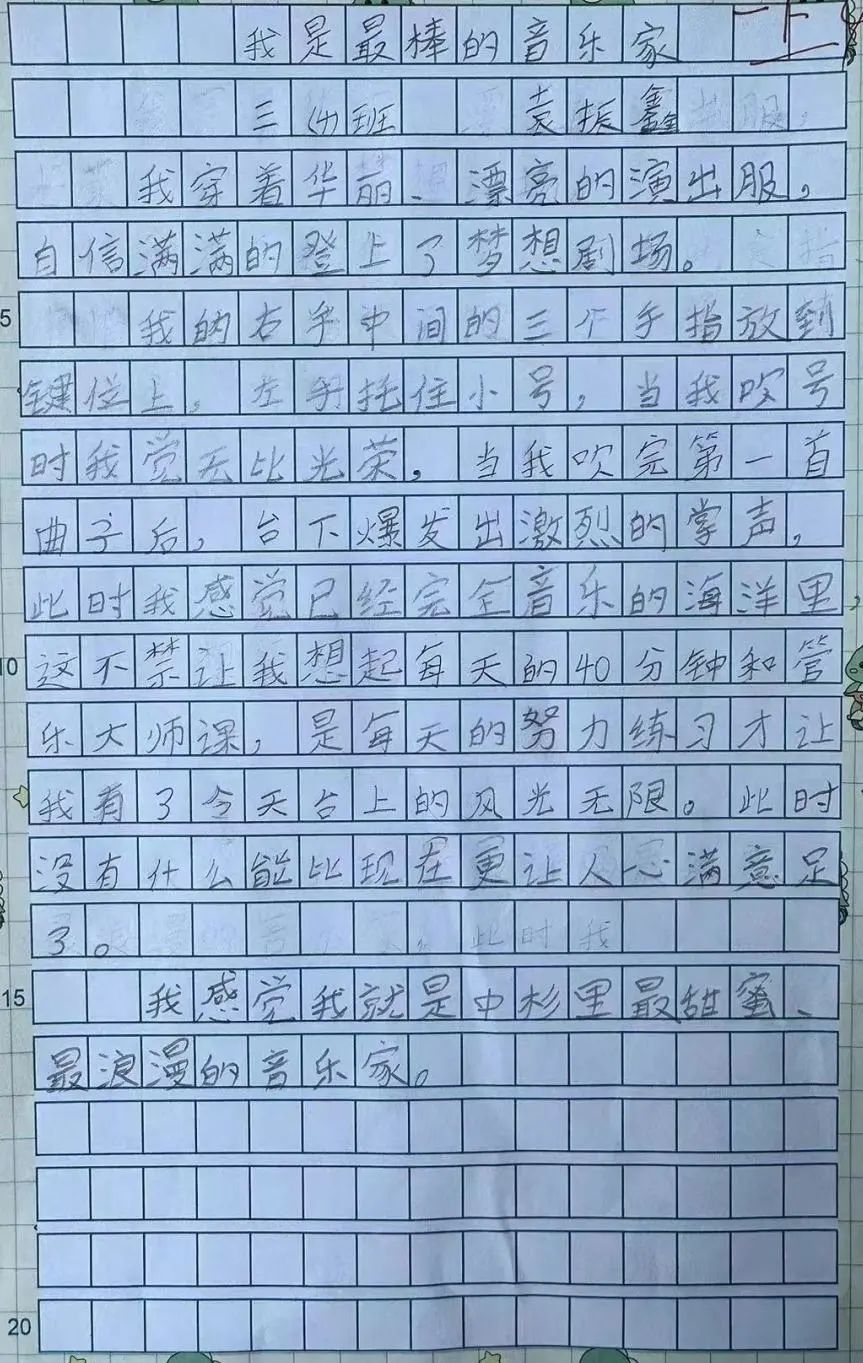 我是最棒的音乐家
三(4)班 袁振鑫
我穿着华丽、漂亮的演出服,
自信满满的登上了梦想剧场。
5 我的右手中间的三个手指放到
键位上,左手托住小号,当我吹号
时我觉无比光荣,当我吹完第一首
曲子后,台下爆发出激烈的掌声,
此时我感觉已经完全音乐的海洋里,
10 这不禁让我想起每天的40分钟和管
乐大师课,是每天的努力练习才让
我有了今天台上的风光无限。此时
没有什么能比现在更让人心满意足
了。
15 我感觉我就是中杉里最甜蜜、
最浪漫的音乐家。
20